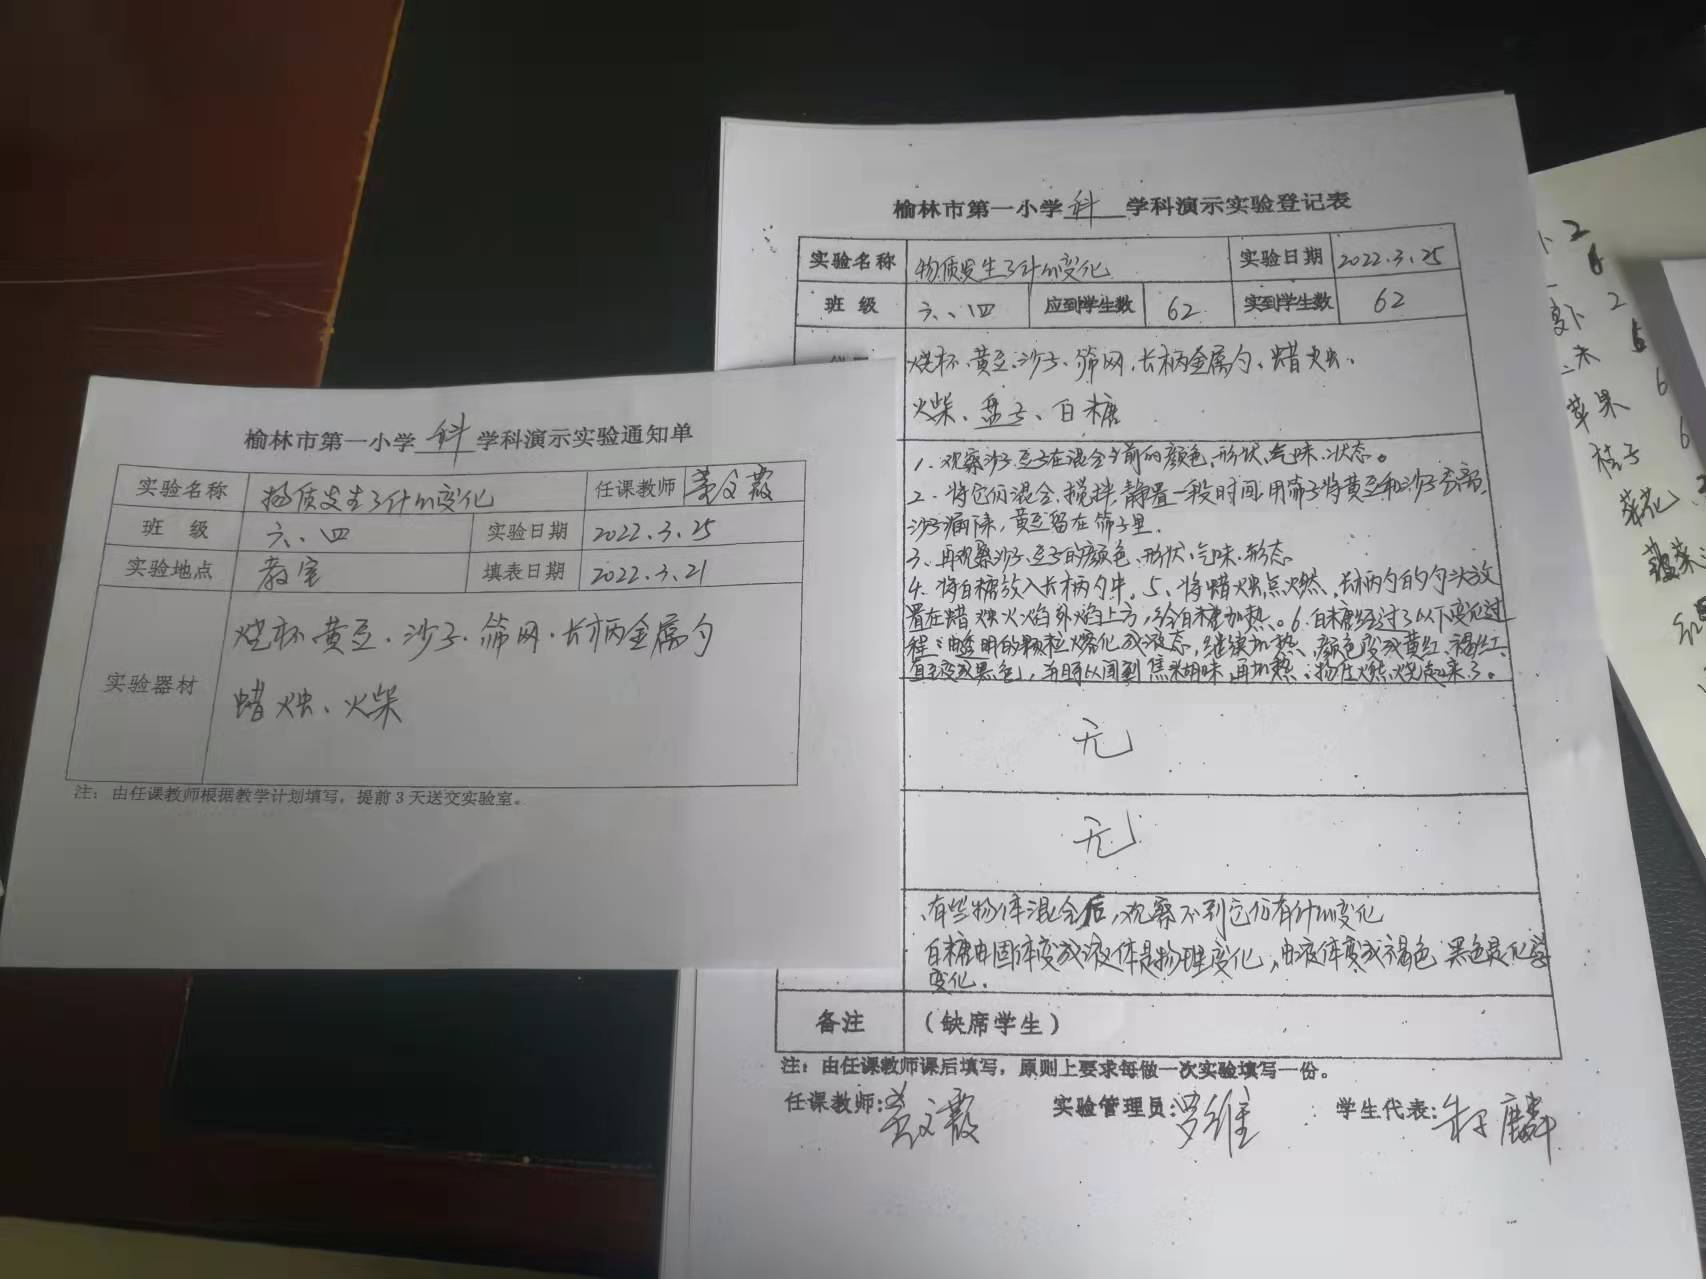 榆林市第一小学 科 学科演示实验通知单
实验名称 物质发生了什么变化 任课教师 文霞
班 级 六、四 实验日期 2022.3.25
实验地点 教室 填表日期 2022.3.21
实验器材
烧杯·黄豆·沙子·筛网·长柄金属勺
蜡烛、火柴
注：由任课教师根据教学计划填写，提前3天送交实验室。
榆林市第一小学 科 学科演示实验登记表
实验名称 物质发生了什么变化 实验日期 2022.3.25
班 级 六、四 应到学生数 62 实到学生数 62
烧杯·黄豆·沙子·筛网·长柄金属勺、蜡烛、
火柴、盘子、白糖
1、观察沙子、豆子在混合之前的颜色、形状、气味、状态。
2、将它们混合、搅拌、静置一段时间，用筛子将黄豆和沙子
沙子漏除，黄豆留在筛子里．
3、再观察沙子、豆子的颜色、形状、气味、形态
4、将白糖放入长柄勺中。5、将蜡烛点燃，长柄勺的勺头放
置在蜡烛火焰外焰上方，给白糖加热。6、白糖经过了以下变化过
程：由透明的颗粒熔化成液态，继续加热，颜色变成黄红、褐红、
直至变成黑色，并可以闻到焦糊味，再加热，物质燃烧起来了。
无
无
有些物体混合后，观察不到它们有什么变化
白糖由固体变成液体是物理变化，由液体变成褐色 黑色是化学
变化．
备注 （缺席学生）
注：由任课教师课后填写，原则上要求每做一次实验填写一份。
任课教师: 文霞 实验管理员: 罗维 学生代表: 麟
2
6
2
6
苹果 6
桔子 6
菜花
菠菜